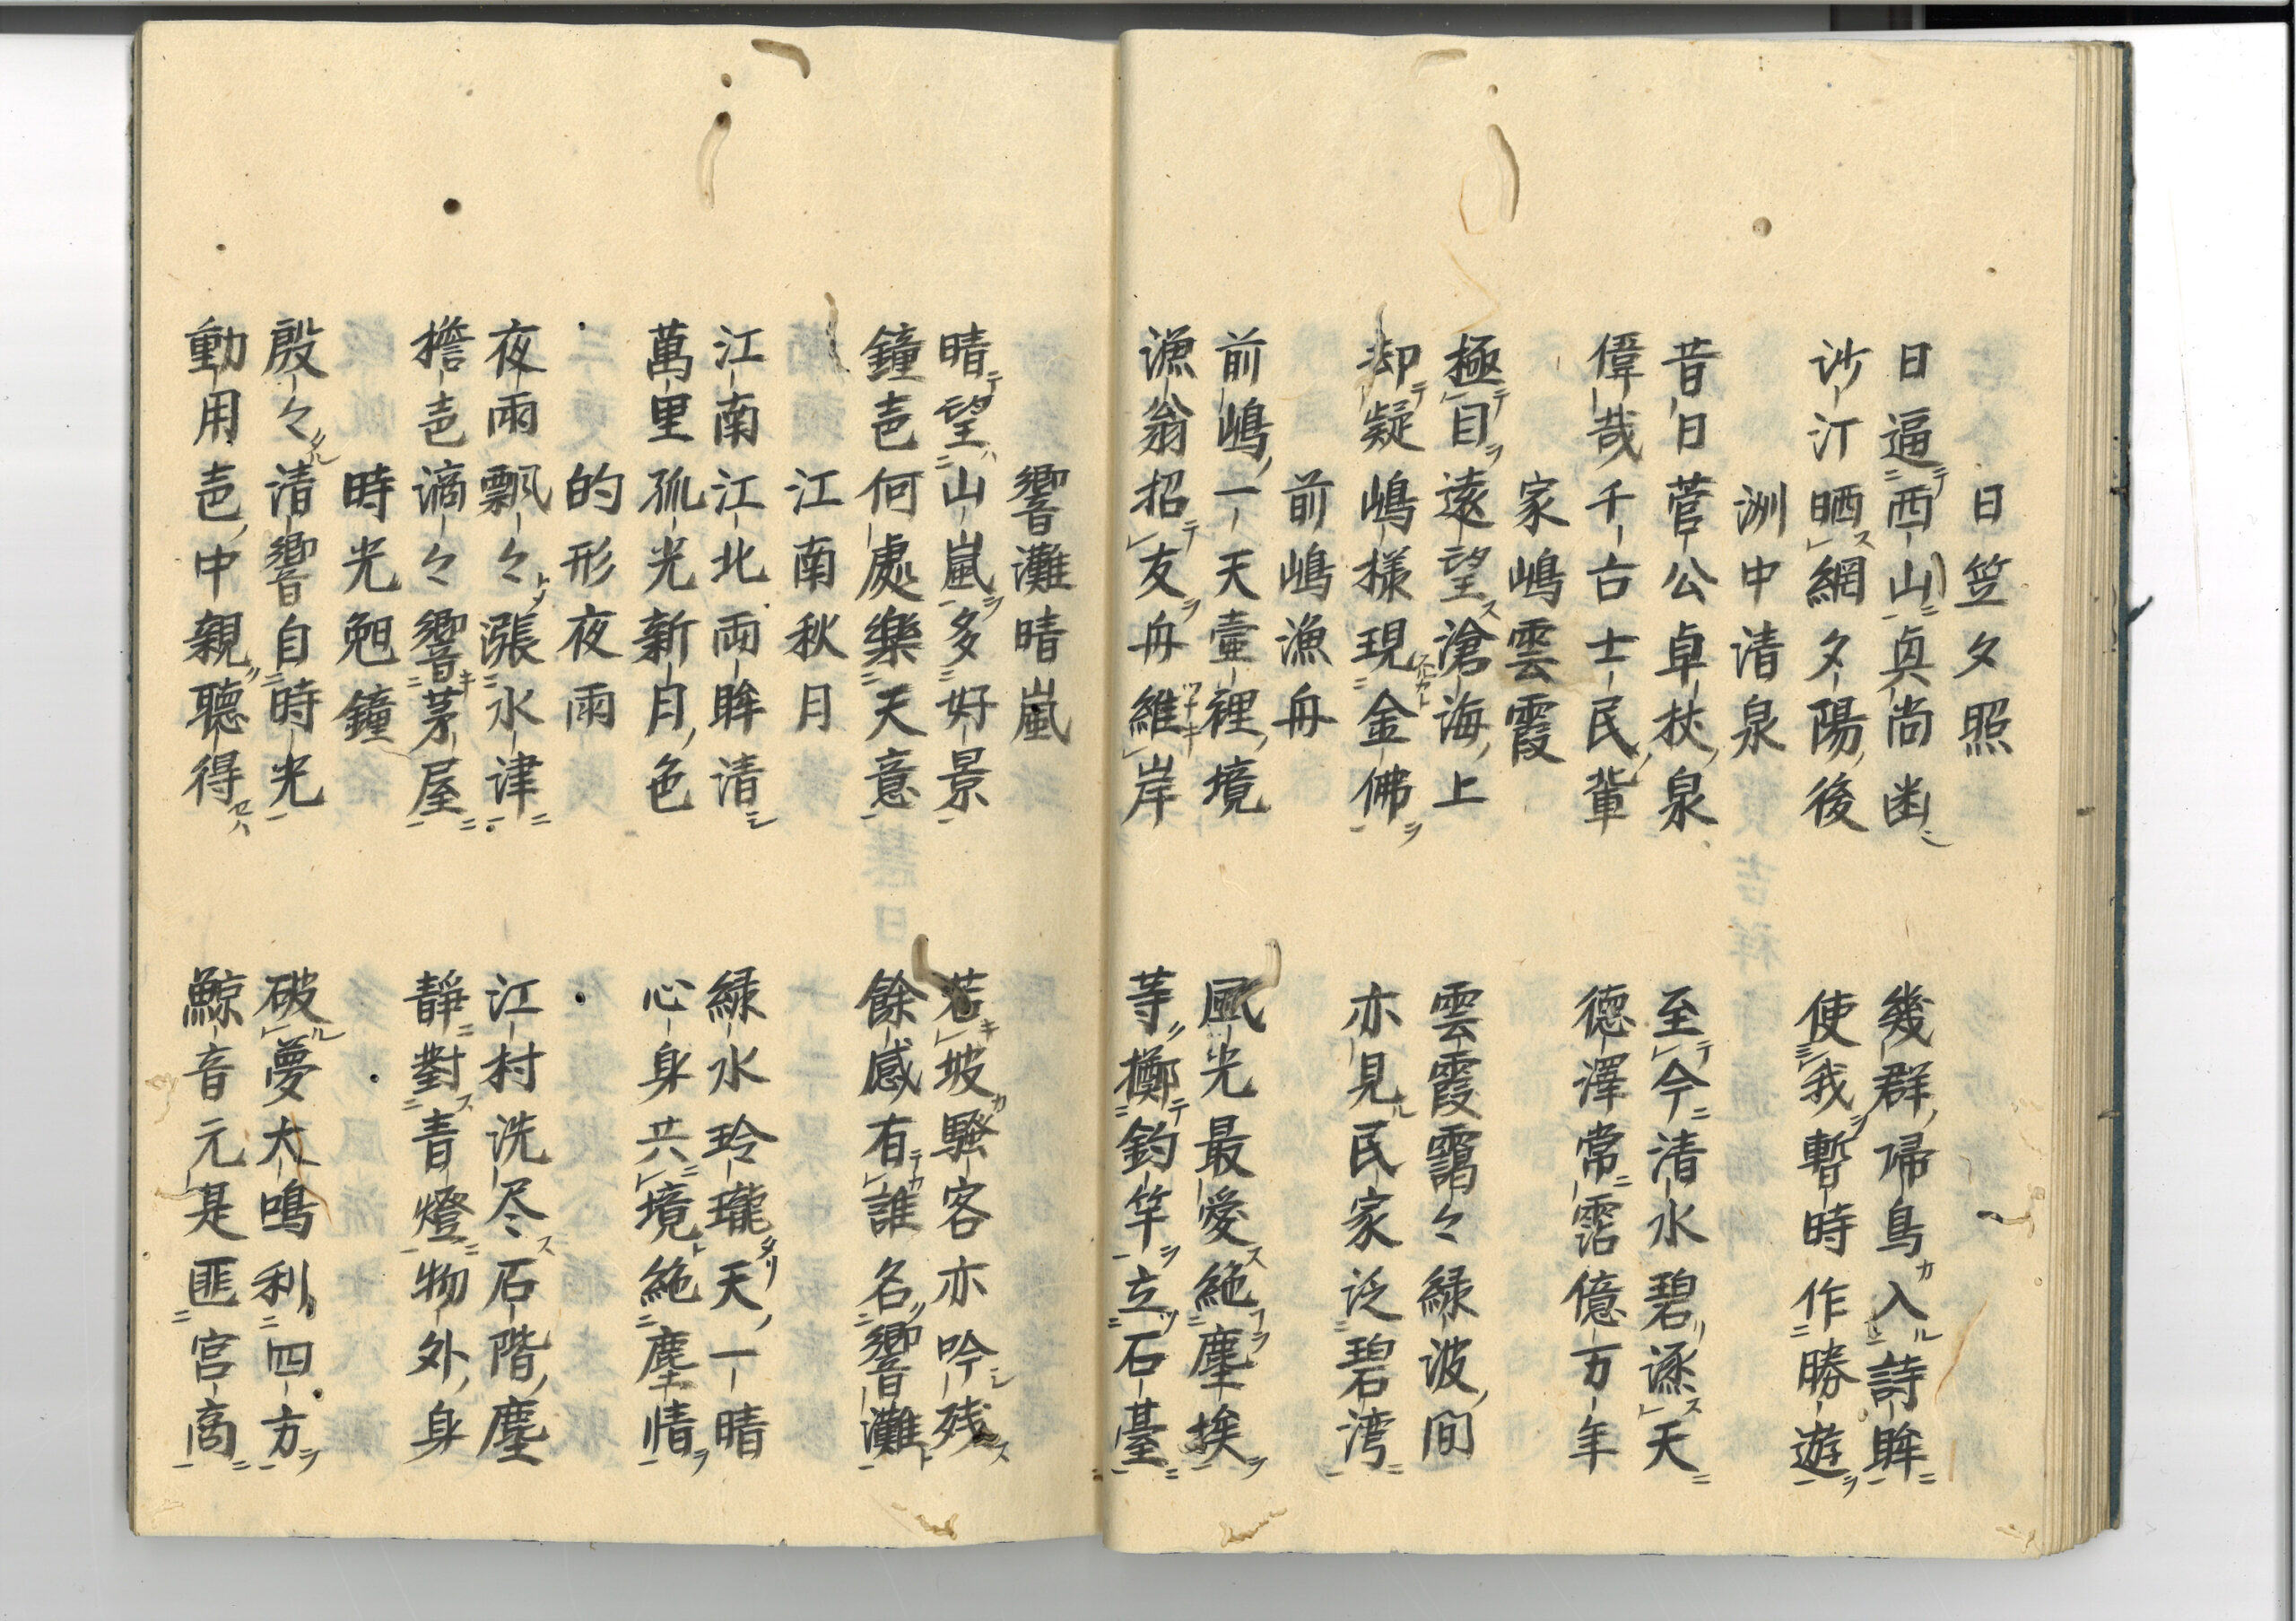 日笠夕照
日逼西山奥尚幽 幾群帰鳥入詩眸
沙汀晒網夕陽後 使我暫時作勝遊
洲中清泉
昔日菅公卓杖泉 至今清水碧逐天
偉哉千古士民輩 徳澤常霑億万年
家嶋雲霞
極目遠望滄海上 雲霞靄々緑波間
却疑嶋様現金佛 亦見民家泛碧湾
前嶋漁舟
前嶋一天壷裡境 風光最愛絶塵埃
漁翁招友舟維岸 等擲釣竿立石臺
響灘晴嵐
晴望山嵐多好景 若坡騒客亦吟残
鐘声何處樂天意 餘感有誰名響灘
江南秋月
江南江北両眸清 緑水玲瓏天一晴
萬里孤光新月色 心身共境絶塵情
的形夜雨
夜雨飄々漲水津 江村洗尽石階塵
檐声滴々響茅屋 静對青燈物外身
時光勉鐘
殷々清響自時光 破夢大鳴利四方
動用声中親聴得 鯨音元是匪宮商